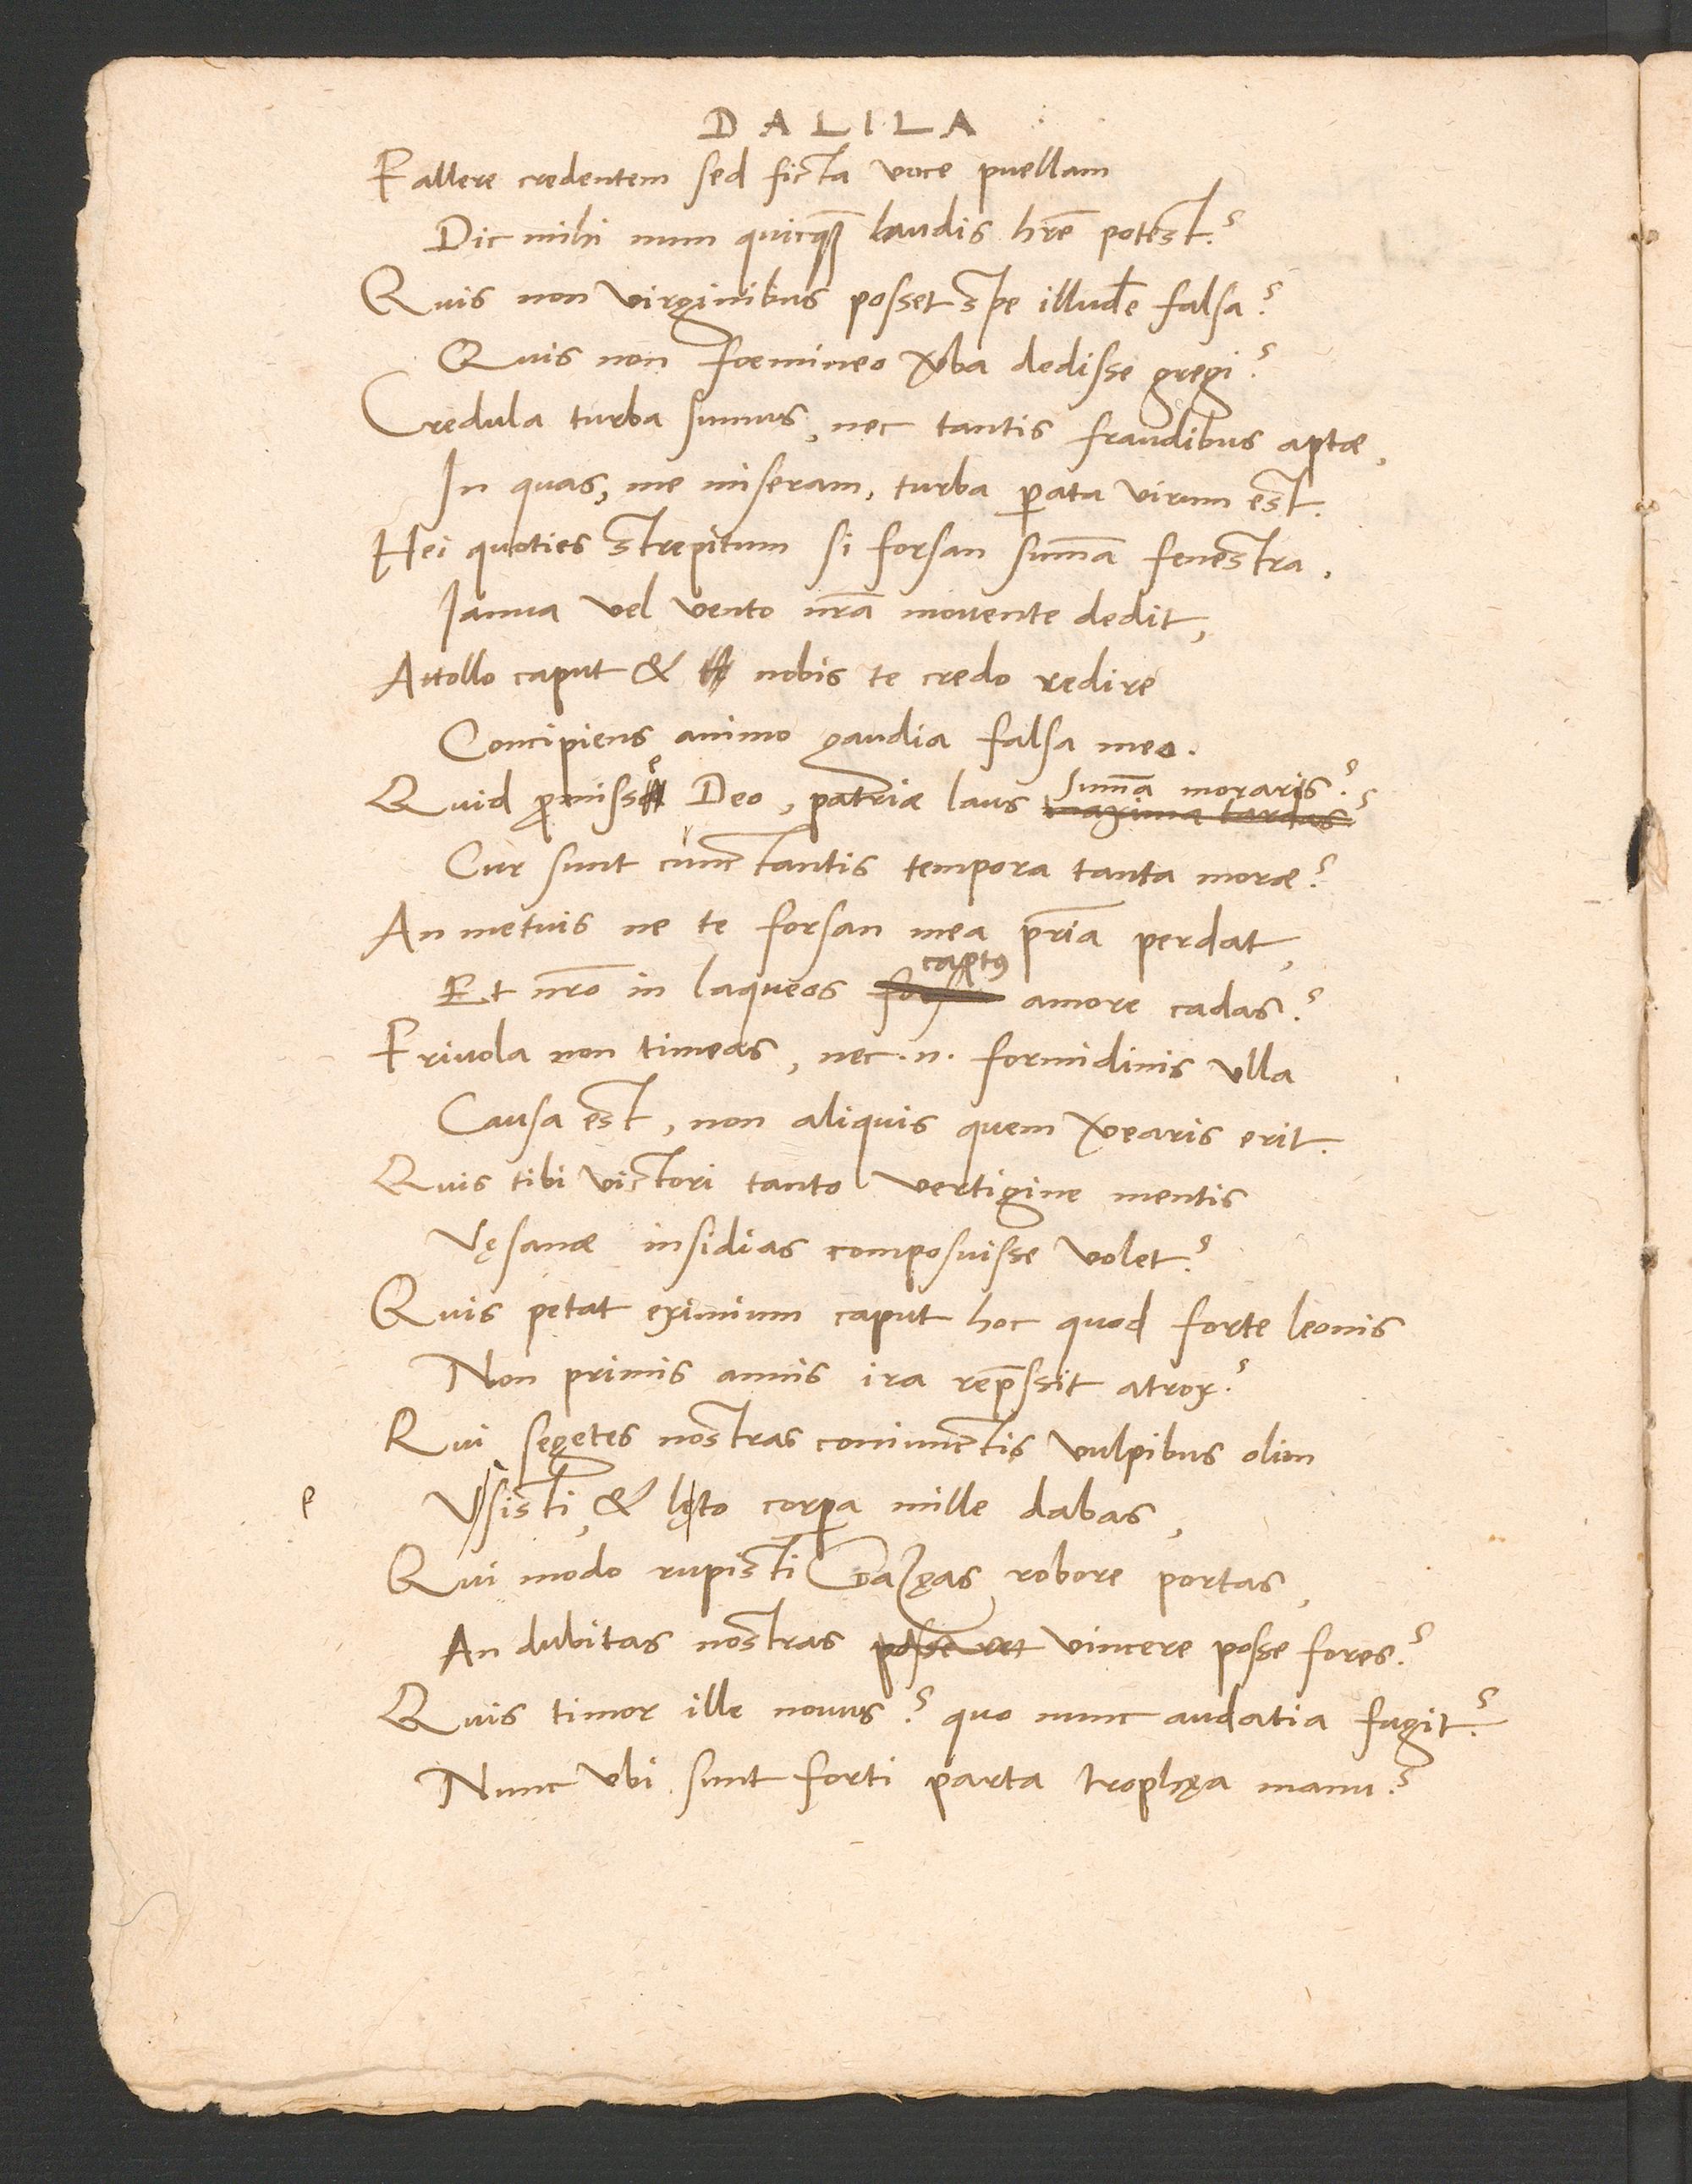 DALILA
Fallere credentem sed ficta voce puellam
Dic mihi num quicq̃ laudis hr̃e potest?
Quis non virginibus posset spe illud̃e falsa?
Quis non fœmineo v̾ba dedisse gregi?
Credula turba sumus, nec tantis fraudibus aptæ,
In quas, me miseram, turba ꝑata virum est.
Hei quoties strepitum si forsan sum̃a fenestra,
Ianua vel vento nr̃a movente dedit,
Attollo caput & nobis te credo redire
Concipiens animo gaudia falsa meo.
Quid ꝓmisse Deo, patriæ laus maxima tardas?
sum̃a moraris?
Cur sunt cunctantis tempora tanta moræ?
An metuis ne te forsan mea pr̃ia perdat,
captꝰ
Et nr̃o in laqueos amore cadas?
Frivola non timeas, nec .n. formidinis ulla
Causa est, non aliquis quem v̾earis erit.
Quis tibi victori tanto vertigine mentis
Vęsanæ insidias composuisse volet?
Quis petat eximium caput hoc quod forte leonis
Non primis annis ira rep̃ssit atrox?
Qui segetes nostras coniunctis vulpibus olim
e
Vsisti, & lęto corꝑa mille dabas,
Qui modo rupisti Gazęas robore portas,
An dubitas nostras posse vincere posse fores?
Quis timor ille novus? quo nunc audatia fugit?
Nunc ubi sunt forti parta trophęa manu?